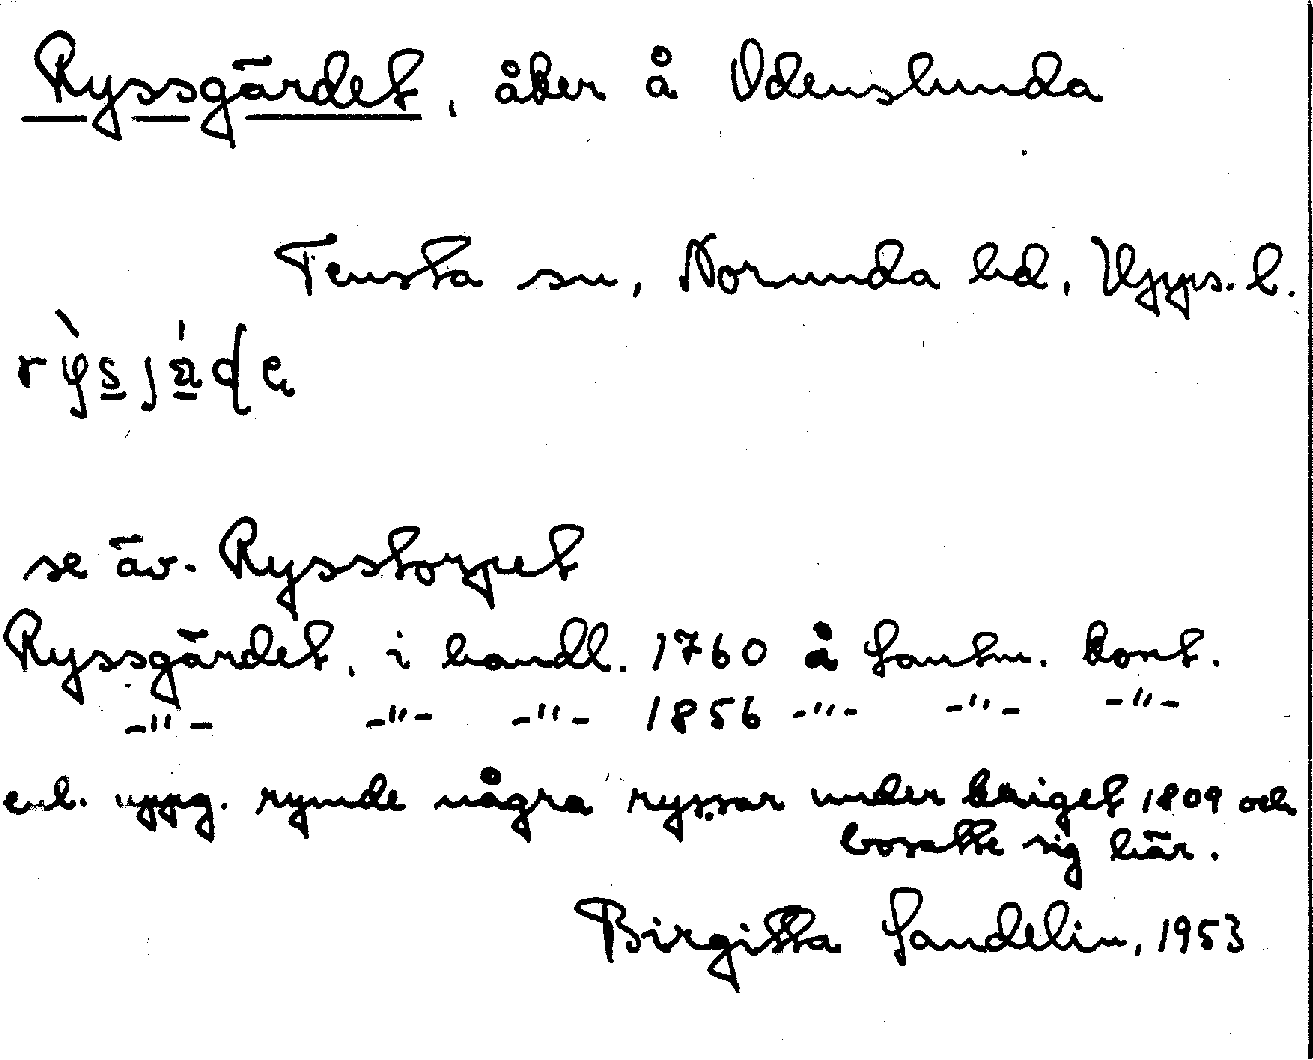 Ryssgärdet, åker å Odenslunda
Tensta sn, Norunda hd, Upps. l.
se äv. Rysstorpet
Ryssgärdet, i handl. 1760 å Lantm. kont.
-"- -"- -"- 1856 -"- -"- -"-
enl. uppg. rymde några ryssar under kriget 1809 och
bosatte sig här.
Birgitta Sandelin, 1953